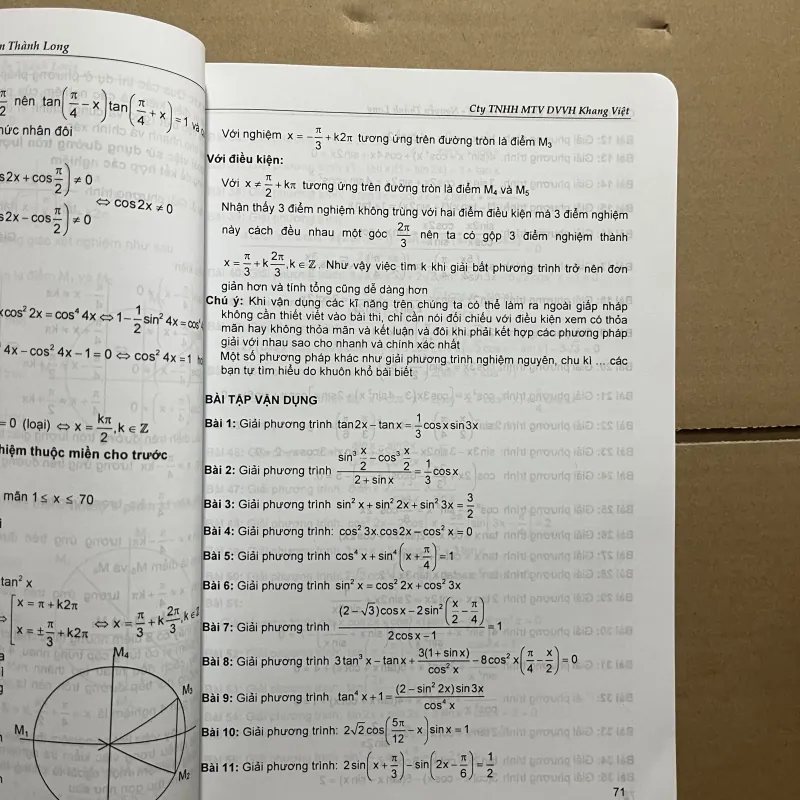 n Thành Long
π/2 nên tan(π/4 − x)tan(π/4 + x) = 1 và
ức nhân đôi
s2x + cos π/2) ≠ 0
⇔ cos2x ≠ 0
s2x − cos π/2) ≠ 0
xcos² 2x = cos⁴ 4x ⇔ 1 − 1/2 sin² 4x = cos⁴
4x − cos² 4x − 1 = 0 ⇔ cos² 4x = 1
= 0 (loại) ⇔ x = kπ/2, k ∈ ℤ
hiệm thuộc miền cho trước
mãn 1 ≤ x ≤ 70
tan² x
x = π + k2π
x = ±π/3 + k2π
⇔ x = π/3 + k 2π/3, k ∈ ℤ
M₄
M₃
M₁
M₂
Cty TNHH MTV DVVH Khang Việt
Với nghiệm x = −π/3 + k2π tương ứng trên đường tròn là điểm M₃
Với điều kiện:
Với x ≠ π/2 + kπ tương ứng trên đường tròn là điểm M₄ và M₅
Nhận thấy 3 điểm nghiệm không trùng với hai điểm điều kiện mà 3 điểm nghiệm
này cách đều nhau một góc 2π/3 nên ta có gộp 3 điểm nghiệm thành
x = π/3 + k 2π/3, k ∈ ℤ. Như vậy việc tìm k khi giải bất phương trình trở nên đơn
giản hơn và tính tổng cũng dễ dàng hơn
Chú ý: Khi vận dụng các kĩ năng trên chúng ta có thể làm ra ngoài giấp nháp
không cần thiết viết vào bài thi, chỉ cần nói đối chiếu với điều kiện xem có thỏa
mãn hay không thỏa mãn và kết luận và đôi khi phải kết hợp các phương pháp
giải với nhau sao cho nhanh và chính xác nhất
Một số phương pháp khác như giải phương trình nghiệm nguyên, chu kì ... các
bạn tự tìm hiểu do khuôn khổ bài biết
BÀI TẬP VẬN DỤNG
Bài 1: Giải phương trình tan2x − tanx = 1/3 cosxsin3x
Bài 2: Giải phương trình (sin³ x/2 − cos³ x/2)/(2 + sinx) = 1/3 cosx
Bài 3: Giải phương trình sin² x + sin² 2x + sin² 3x = 3/2
Bài 4: Giải phương trình: cos² 3x.cos2x − cos² x = 0
Bài 5: Giải phương trình cos⁴ x + sin⁴(x + π/4) = 1
Bài 6: Giải phương trình sin² x = cos² 2x + cos² 3x
Bài 7: Giải phương trình ((2 − √3)cosx − 2sin²(x/2 − π/4))/(2cosx − 1) = 1
Bài 8: Giải phương trình 3tan³ x − tanx + 3(1 + sinx)/cos² x − 8cos² x(π/4 − x/2) = 0
Bài 9: Giải phương trình tan⁴ x + 1 = (2 − sin² 2x)sin3x/cos⁴ x
Bài 10: Giải phương trình: 2√2 cos(5π/12 − x)sinx = 1
Bài 11: Giải phương trình: 2sin(x + π/3) − sin(2x − π/6) = 1/2
71